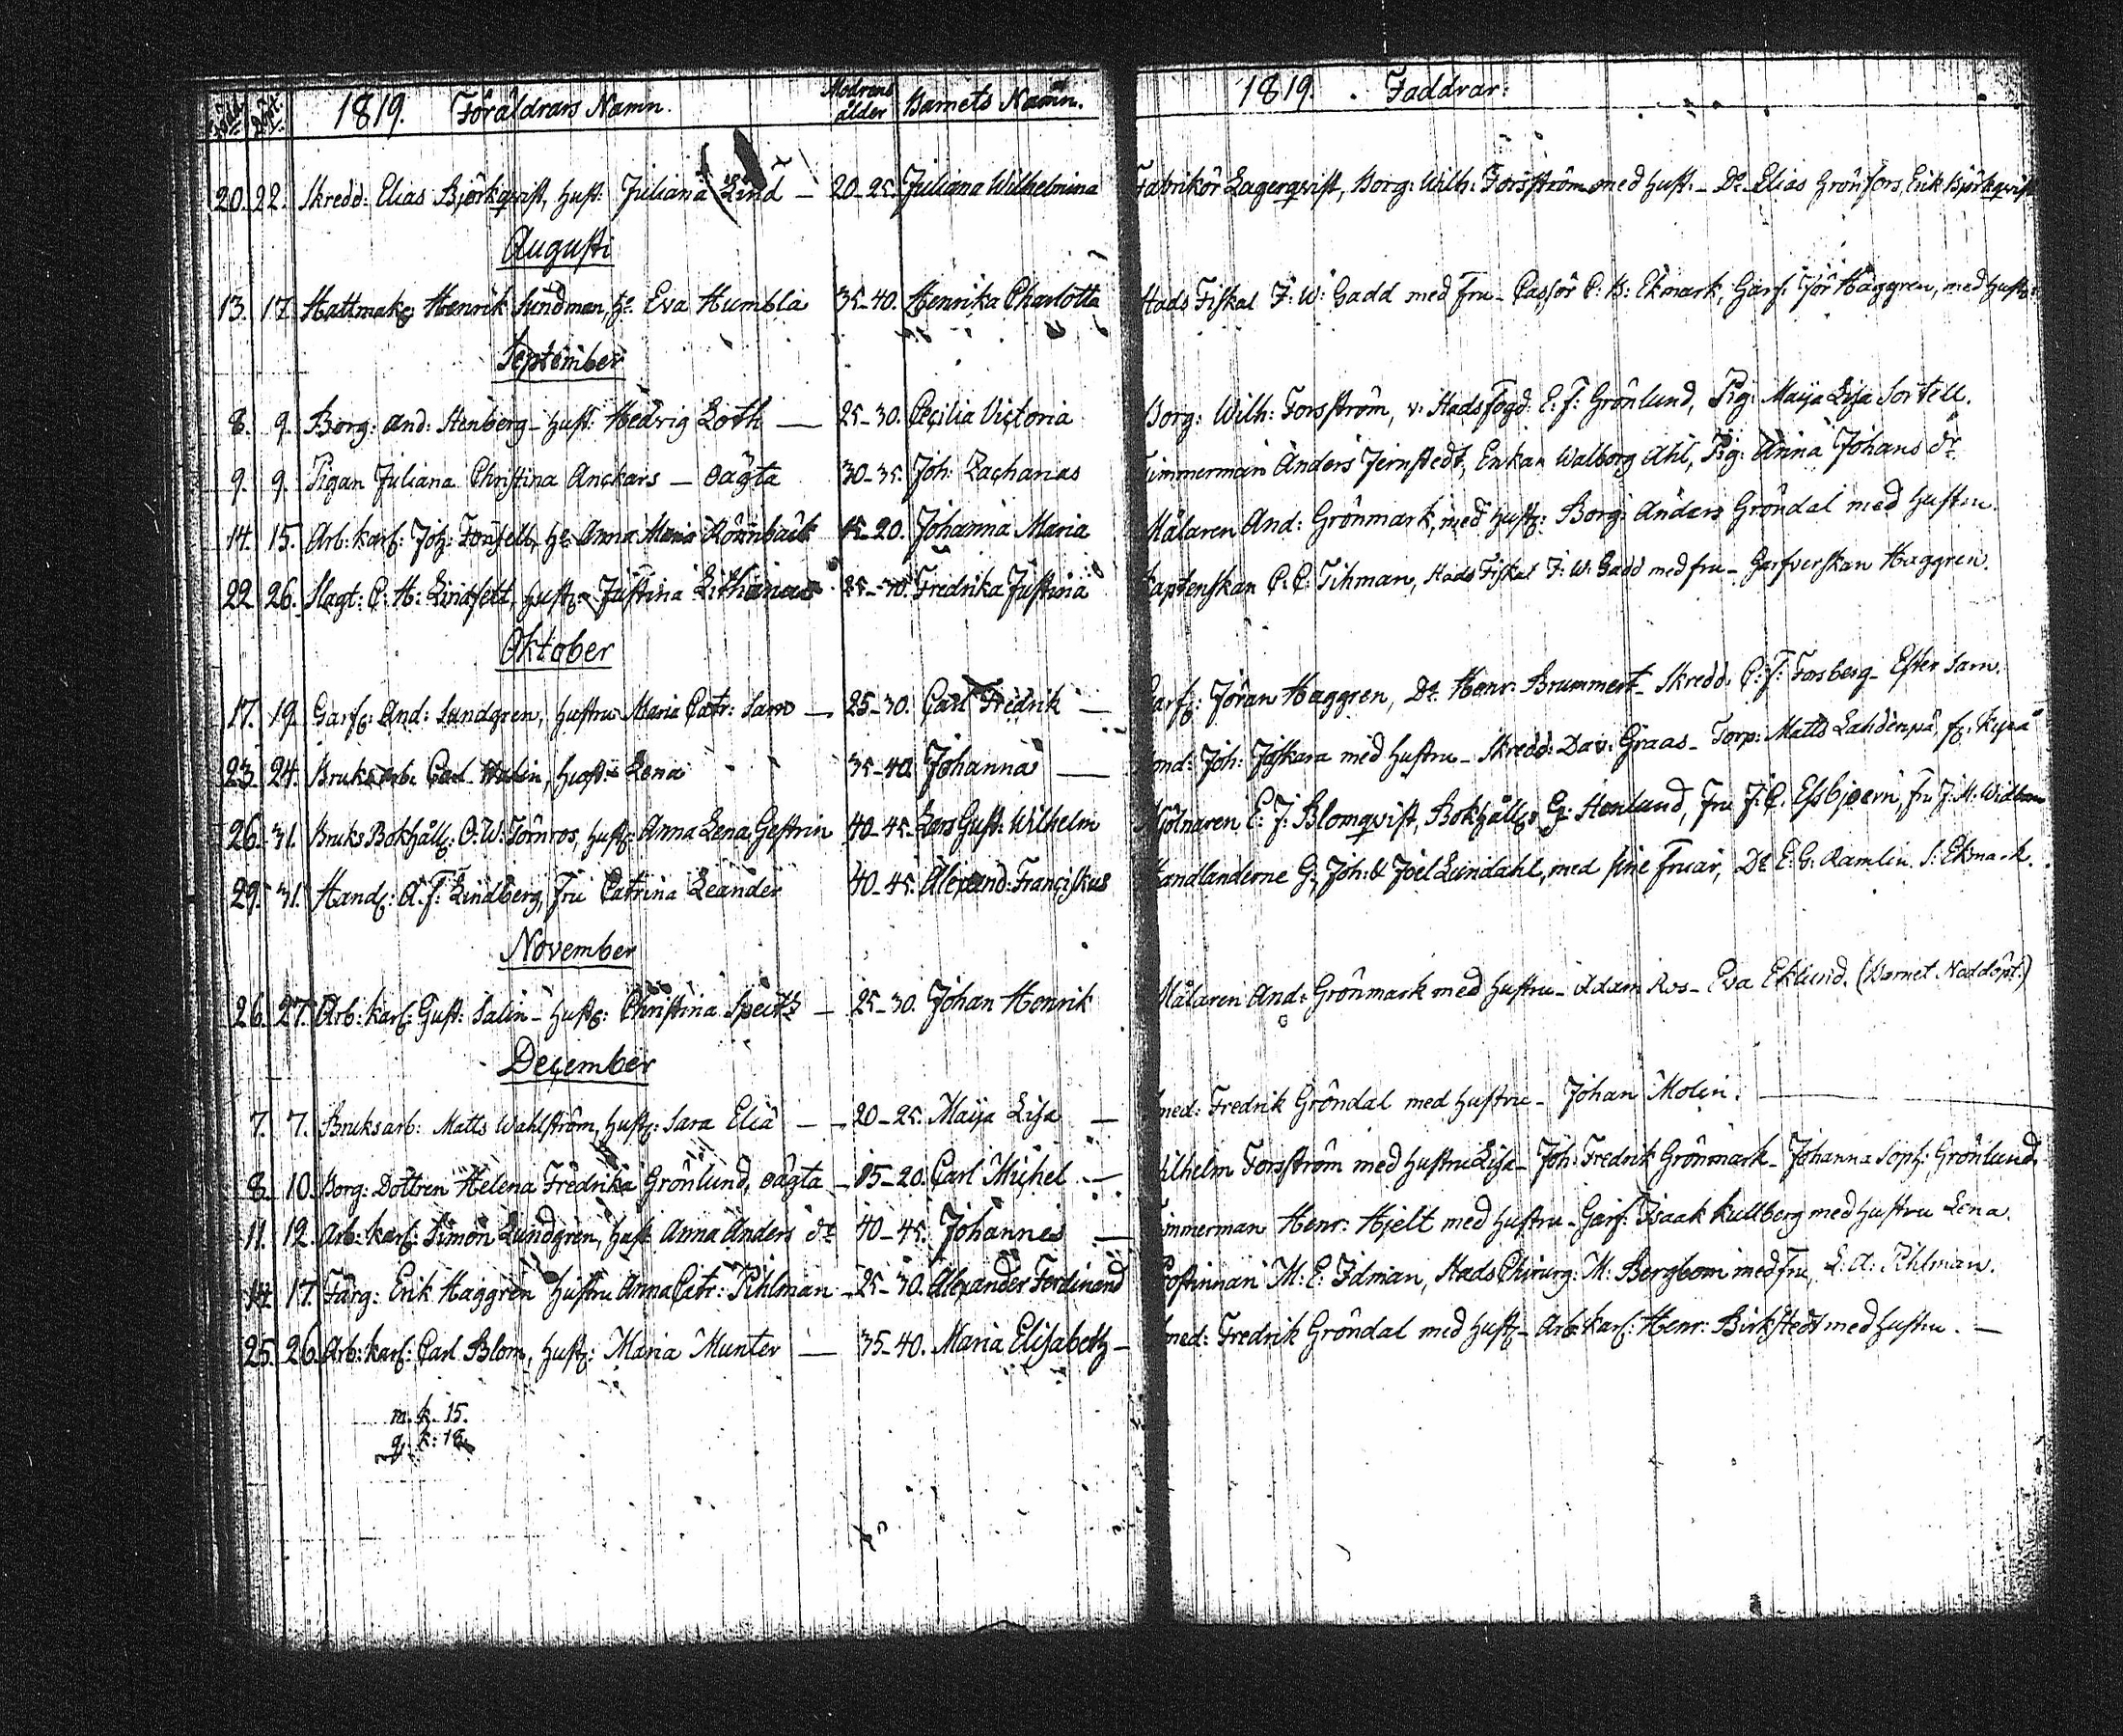 Född. Döpt. 1819. Föräldrars Namn. Modrens ålder Barnets Namn.
20. 22. Skredd: Elias Björkqvist, Hust: Juliana Lind — 20-25. Juliana Wilhelmina
Augusti
13. 17. Hattmak: Henrik Sundman, Ho Eva Humbla 35-40. Henrika Charlotta
September
8. 9. Borg: And: Stenberg - Hust: Hedvig Loth — 25-30. Cecilia Victoria
9. 9. Pigan Juliana Christina Anckars — oägta 30-35. Joh: Zacharias
14. 15. Arb: karl: Joh: Hr Anna Maria Rönnback 15-20. Johanna Maria
22 26. Slagt: C. H. Lindfelt, Hust: Justina 25-30. Fredrika Justina
Oktober
17. 19. Garf: And: Sundgren, Hustru Maria Catr: Sarn — 25-30. Carl Fredrik —
23. 24. Bruksarb: Carl Hust: Lena 35-40. Johanna —
26. 31. Bruks Bokhåll: O. W. Törnros, Hust: Anna Lena Gestrin 40-45. Lars Gust: Wilhelm
29. 31. Handl: A. F. Lindberg, Fru Catrina Leander 40-45. Alexand: Franciskus
November
26. 27. Arb: karl: Gust: Salin - Hust: Christina Speitz — 25-30. Johan Henrik
December
7. 7. Bruksarb: Matts Wahlström, Hust: Sara Eliä — 20-25. Maija Lisa —
8. 10. Borg: Dottren Helena Fredrika Grönlund, oägta — 15-20. Carl Michel —
11. 12. Arb: karl: Simon Lundgren, Hust: Anna Anders dr 40-45. Johannes —
14. 17. Färg: Erik Häggren Hustru Anna Catr: Pihlman - 25-30. Alexander Ferdinand
25. 26. Arb: karl: Carl Blom, Hust: Maria Munter — 35-40. Maria Elisabeth -
m. k. 15.
q. k: 18.
1819. Faddrar:
Fabrikör Lagerqvist, Borg: Wilh: Forsström med Hust: - Do Elias Grönfors, Erik Björkqvist
Stads Fiskal F. W: Gadd med Fru - Cassör C. B: Ekmark, Garf: Jör Häggren, med Hust:
Borg: Wilh: Forsström, v: Stadsfogd: E. J: Grönlund, Pig: Maija Lisa Sortell.
Timmerman Anders Jernstedt, Enkan Walborg Ahl, Pig: Anna Johans dr
Målaren And: Grönmark, med Hust: Borg: Anders Gröndal med Hustru.
Kaptenskan C. C: Tihman, Stads Fiskal F. W. Gadd med fru - Garfverskan Häggren.
Garf: Jöran Häggren, Do Henr: Brummert - Skredd: C. J: Forsberg - Ester Sarn.
Bond: Joh: Jäskara med Hustru - Skredd: Dav: Graas - Torp: Matts
Mjölnaren E. J: Blomqvist, Bokhåll: G: Stenlund, Fru F. C. Essbjörn, Fru J. M: Widbom
Handlanderne G, Joh: & Joel Lundahl, med sine Fruar, Do E. G: Ramlin. S: Ekmark.
Målaren And: Grönmark med Hustru - Adam Ros - Eva Eklund. (Barnet Nöddöpt.)
Smed: Fredrik Gröndal med Hustru - Johan Molin. —
Wilhelm Forsström med Hustru Lisa - Joh: Fredrik Grönmark - Johanna Soph: Grönlund.
Timmerman Henr: Hjelt med Hustru - Garf: Isaak Kullberg med Hustru Lena.
Postinnan M. E: Idman, Stads Chirurg: M: Bergbom med Fru, L. A: Pihlman.
Smed: Fredrik Gröndal med Hust - Arb: karl: Henr: Birkstedt med Hustru. —